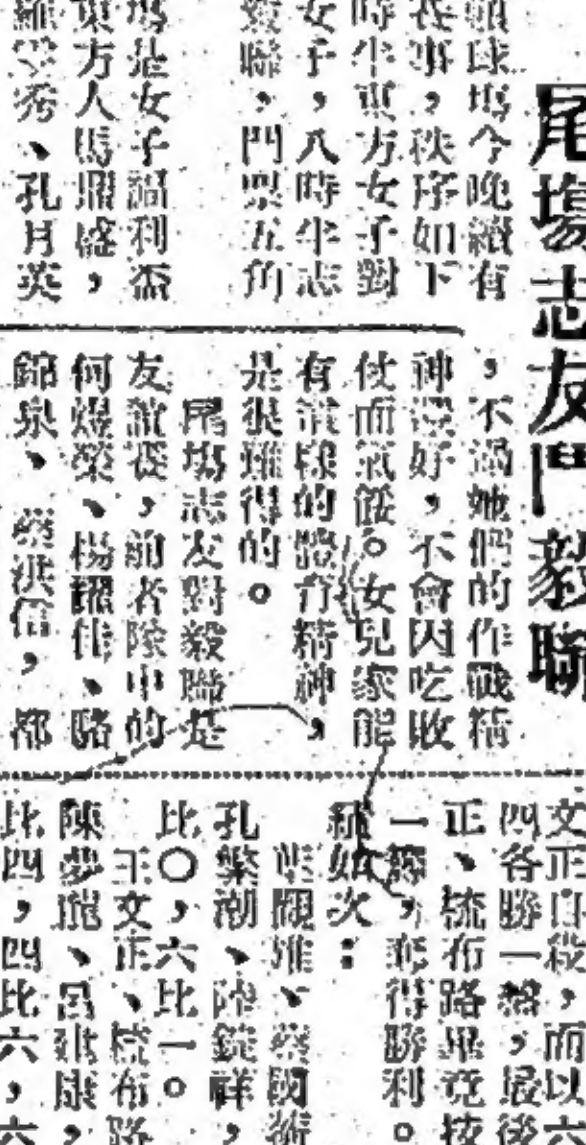 尾場志友鬥毅聯
球塲今晚續有
事，秩序如下
時半東方女子對
女子，八時半志
聯，門票五角
塲是女子福利盃
東方人馬盛，
秀、孔月英
，不過她們的作戰精
神很好，不會因吃敗
仗而氣餒。女兒家能
有這樣的體育精神，
是很難得的。
尾塲志友對毅聯是
友誼從，前者陣中的
何煜榮、楊耀佳、駱
錦泉、蔡洪信，都
文正自殺，而以六
四各勝一盤，最後
正、梳布路果竟技
一籌，奪得勝利。
績如次：
葉觀雄、蔡國衡
孔繁潮、陳錠祥，
比〇，六比一。
王文正、梳布路
陳夢龍、呂建康，
比四，四比六，六